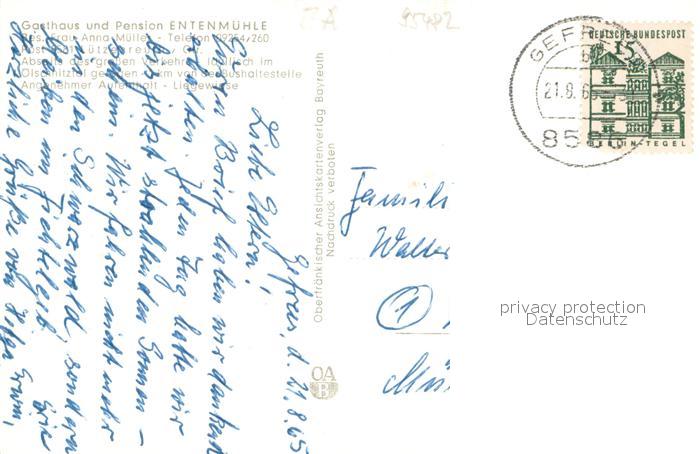 Gasthaus und Pension ENTENMÜHLE
Bes. Frau Anna Müller - Telefon 09254/260
Post Lützenreuth / Ofr.
Abseits des großen Verkehrs - Idyllisch im
Ölschnitztal gelegen - km von Bushaltestelle
Angenehmer Aufenthalt - Liegewiese
95482
GEFREES
21.8.65
85
DEUTSCHE BUNDESPOST
15
BERLIN-TEGEL
Gefrees, d. 21.8.65
Liebe Eltern!
Euren Brief haben wir dankend
erhalten. Jeden Tag hatte wir
bis jetzt strahlenden Sonnen-
schein. Wir fahren nicht mehr
in den Schwarzwald, sondern
bleiben im Fichtelgeb.
Herzliche Grüße von Helga
Erwin,
Oberfränkischer Ansichtskartenverlag Bayreuth
Nachdruck verboten
OA
B
Famili
Walter
1
Mün
privacy protection
Datenschutz